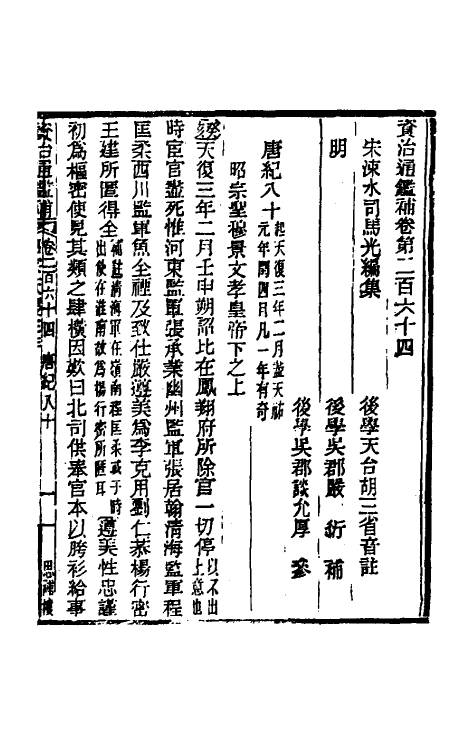 資治通鑑補卷第二百六十四
宋涑水司馬光編集
後學天台胡三省音註
明
後學吳郡嚴衍補
後學吳郡談允厚參
唐紀八十起天復三年二月盡天祐元年閏四月凡一年有奇
昭宗聖穆景文孝皇帝下之上
天復三年二月壬申朔詔比在鳳翔府所除官一切停以不出上意也
時宦官盡死惟河東監軍張承業幽州監軍張居翰清海監軍程
匡柔西川監軍魚全禋及致仕嚴遵美為李克用劉仁恭楊行密
王建所匿得全補註清海軍在嶺南程匡柔或于時出使在淮南故為楊行密所匿耳遵美性忠謹
初為樞密使見其類之肆橫因歎曰北司供奉官本以胯衫給事
資治通鑑補 卷二百六十四 唐紀八十 一 思補樓